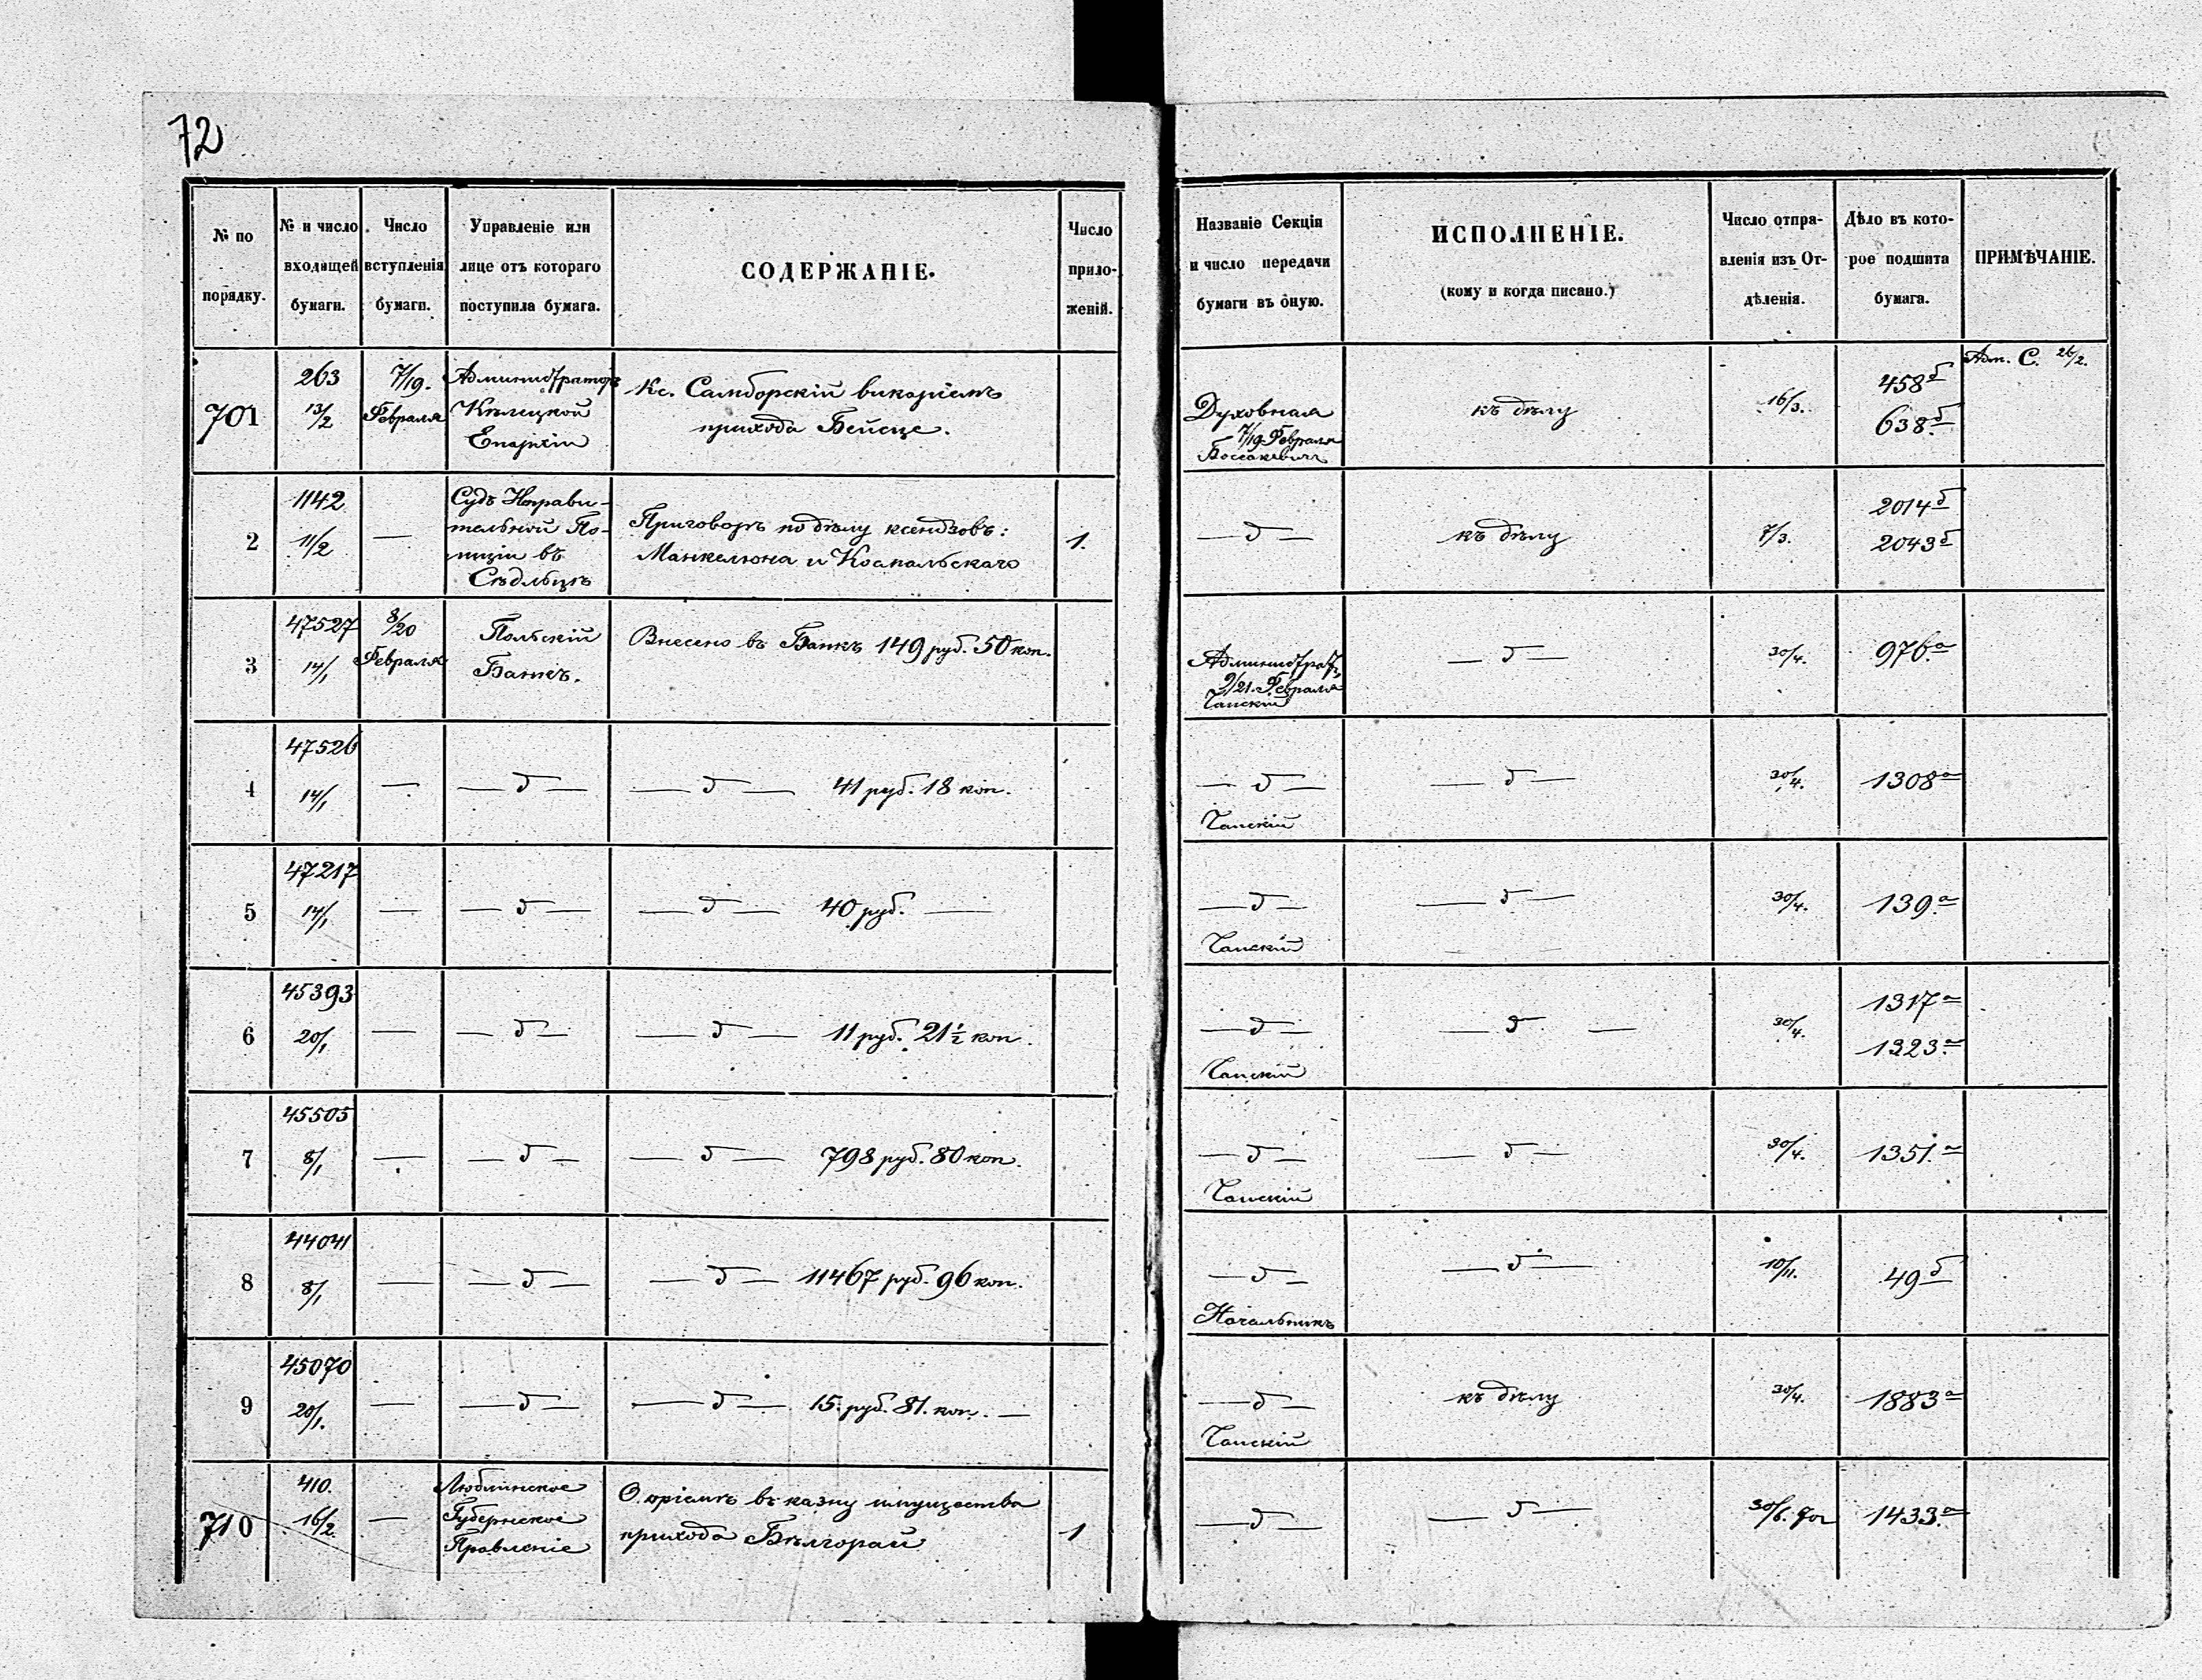 72
№ по порядку.
№ и число входящей бумаги.
Число вступленія бумаги.
Управленіе или лице отъ котораго поступила бумага.
СОДЕРЖАНІЕ.
Число приложеній.
Названіе Секціи и число передачи бумаги въ оную.
ИСПОЛНЕНІЕ.
(кому и когда писано.)
Число отправленія изъ Отдѣленія.
Дѣло въ которое подшита бумага.
ПРИМѢЧАНІЕ.
701 263 13/2 7/19. Февраля Администраторъ Кѣлецкой Епархіи Кс. Самборскій викаріемъ прихода Бейсце. Духовная 7/19 Февраля къ дѣлу 16/3. 458б 638б Адм. С. 26/2.
2 1142 11/2 — Судъ Исправительной Полиціи въ Сѣдльцѣ Приговоръ по дѣлу ксендзовъ: и 1. — д — къ дѣлу 7/3. 2014б 2043б
3 47527 14/1 8/20 Февраля Польскій Банкъ. Внесено въ Банкъ 149 руб. 50 коп. Администрат. 9/21. Февраля — д — 30/4. 976а
4 47526 14/1 — — д — — д — 41 руб. 18 коп. — д — — д — 30/4. 1308а
5 47217 14/1 — — д — — д — 40 руб. — — д — — д — 30/4. 139а
6 45393 20/1 — — д — — д — 11 руб. 21 1/2 коп. — д — — д — 30/4. 1317а 1323а
7 45505 8/1 — — д — — д — 798 руб. 80 коп. — д — — д — 30/4. 1351а
8 44041 8/1 — — д — — д — 11467 руб. 96 коп. — д — Начальникъ — д — 10/11. 49б
9 45070 20/1. — — д — — д — 15 руб. 81. коп. — — д — къ дѣлу 30/4. 1883а
710 410. 16/2 — Люблинское Губернское Правленіе О пріемѣ въ казну имущества прихода Бѣлгорай 1 — д — — д — 1433а